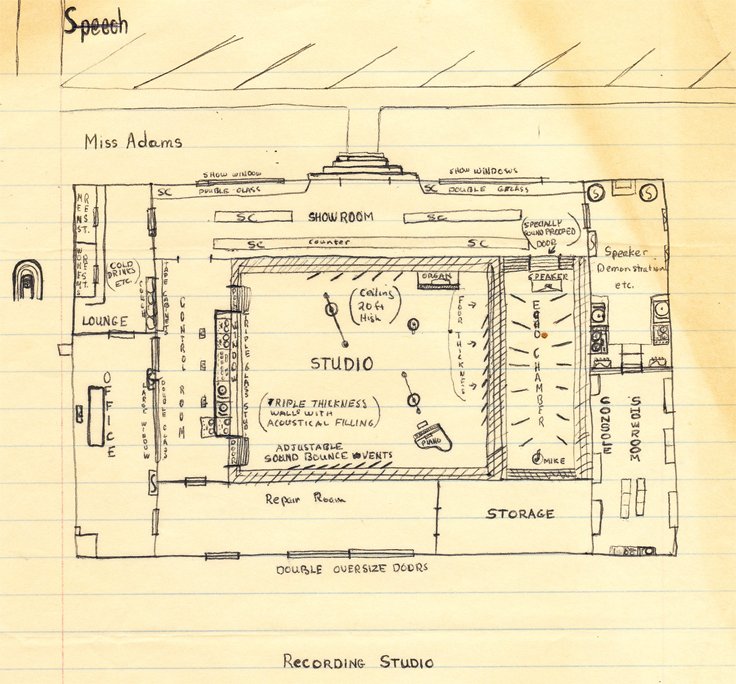 Speech
Miss Adams
SHOW WINDOW
SHOW WINDOWS
SC
DOUBLE GLASS
SC
DOUBLE GLASS
MENS
REST.
WOMENS
REST.
SC
SHOWROOM
SC
S
S
SC
counter
SC
SPECIALLY
SOUND PROOFED
DOOR
Speaker
Demonstration
etc.
COLD
DRINKS
ETC.
LOUNGE
COUCH
TAPE CABINETS
CONTROL ROOM
WINDOW
TRIPLE GLASS STUDIO
Ceiling
20 ft
High
ORGAN
FOUR THICKNESS
SPEAKER
ECHO CHAMBER
STUDIO
OFFICE
GLASS WINDOW
DOUBLE GLASS
TRIPLE THICKNESS
WALLS WITH
ACOUSTICAL FILLING
ADJUSTABLE
SOUND BOUNCE VENTS
PIANO
MIKE
CONSOLE
SHOWROOM
Repair Room
STORAGE
DOUBLE OVERSIZE DOORS
RECORDING STUDIO